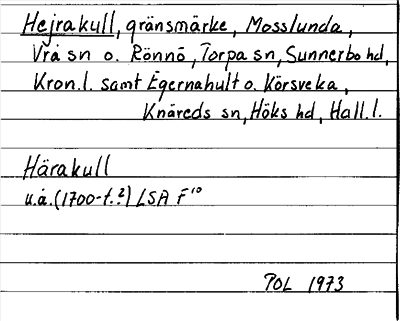 Hejrakull, gränsmärke, Mosslunda,
Vrå sn o. Rönnö, Torpa sn, Sunnerbo hd,
Kron.l. samt Egernahult o. Körsveka,
Knäreds sn, Höks hd, Hall.l.
Härakull
u.å. (1700-t.?) LSA F¹⁰
POL 1973